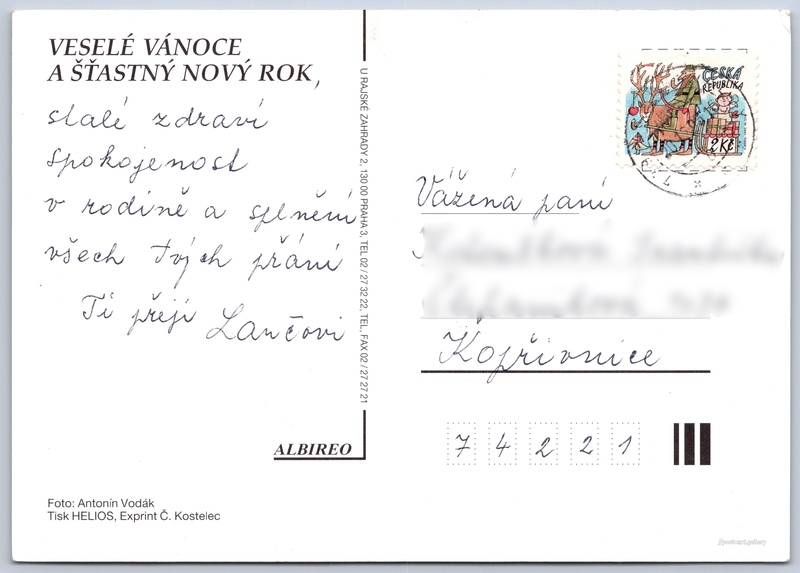 VESELÉ VÁNOCE
A ŠŤASTNÝ NOVÝ ROK,
stalé zdraví
spokojenost
v rodině a splnění
všech tvých přání
Ti přejí Lančovi
ALBIREO
Foto: Antonín Vodák
Tisk HELIOS, Exprint Č. Kostelec
U RAJSKÉ ZAHRADY 2, 130 00 PRAHA 3, TEL 02 / 27 32 22, TEL, FAX 02 / 27 27 21
ČESKÁ
REPUBLIKA
2 Kč
Vážená paní
Kopřivnice
7 4 2 2 1